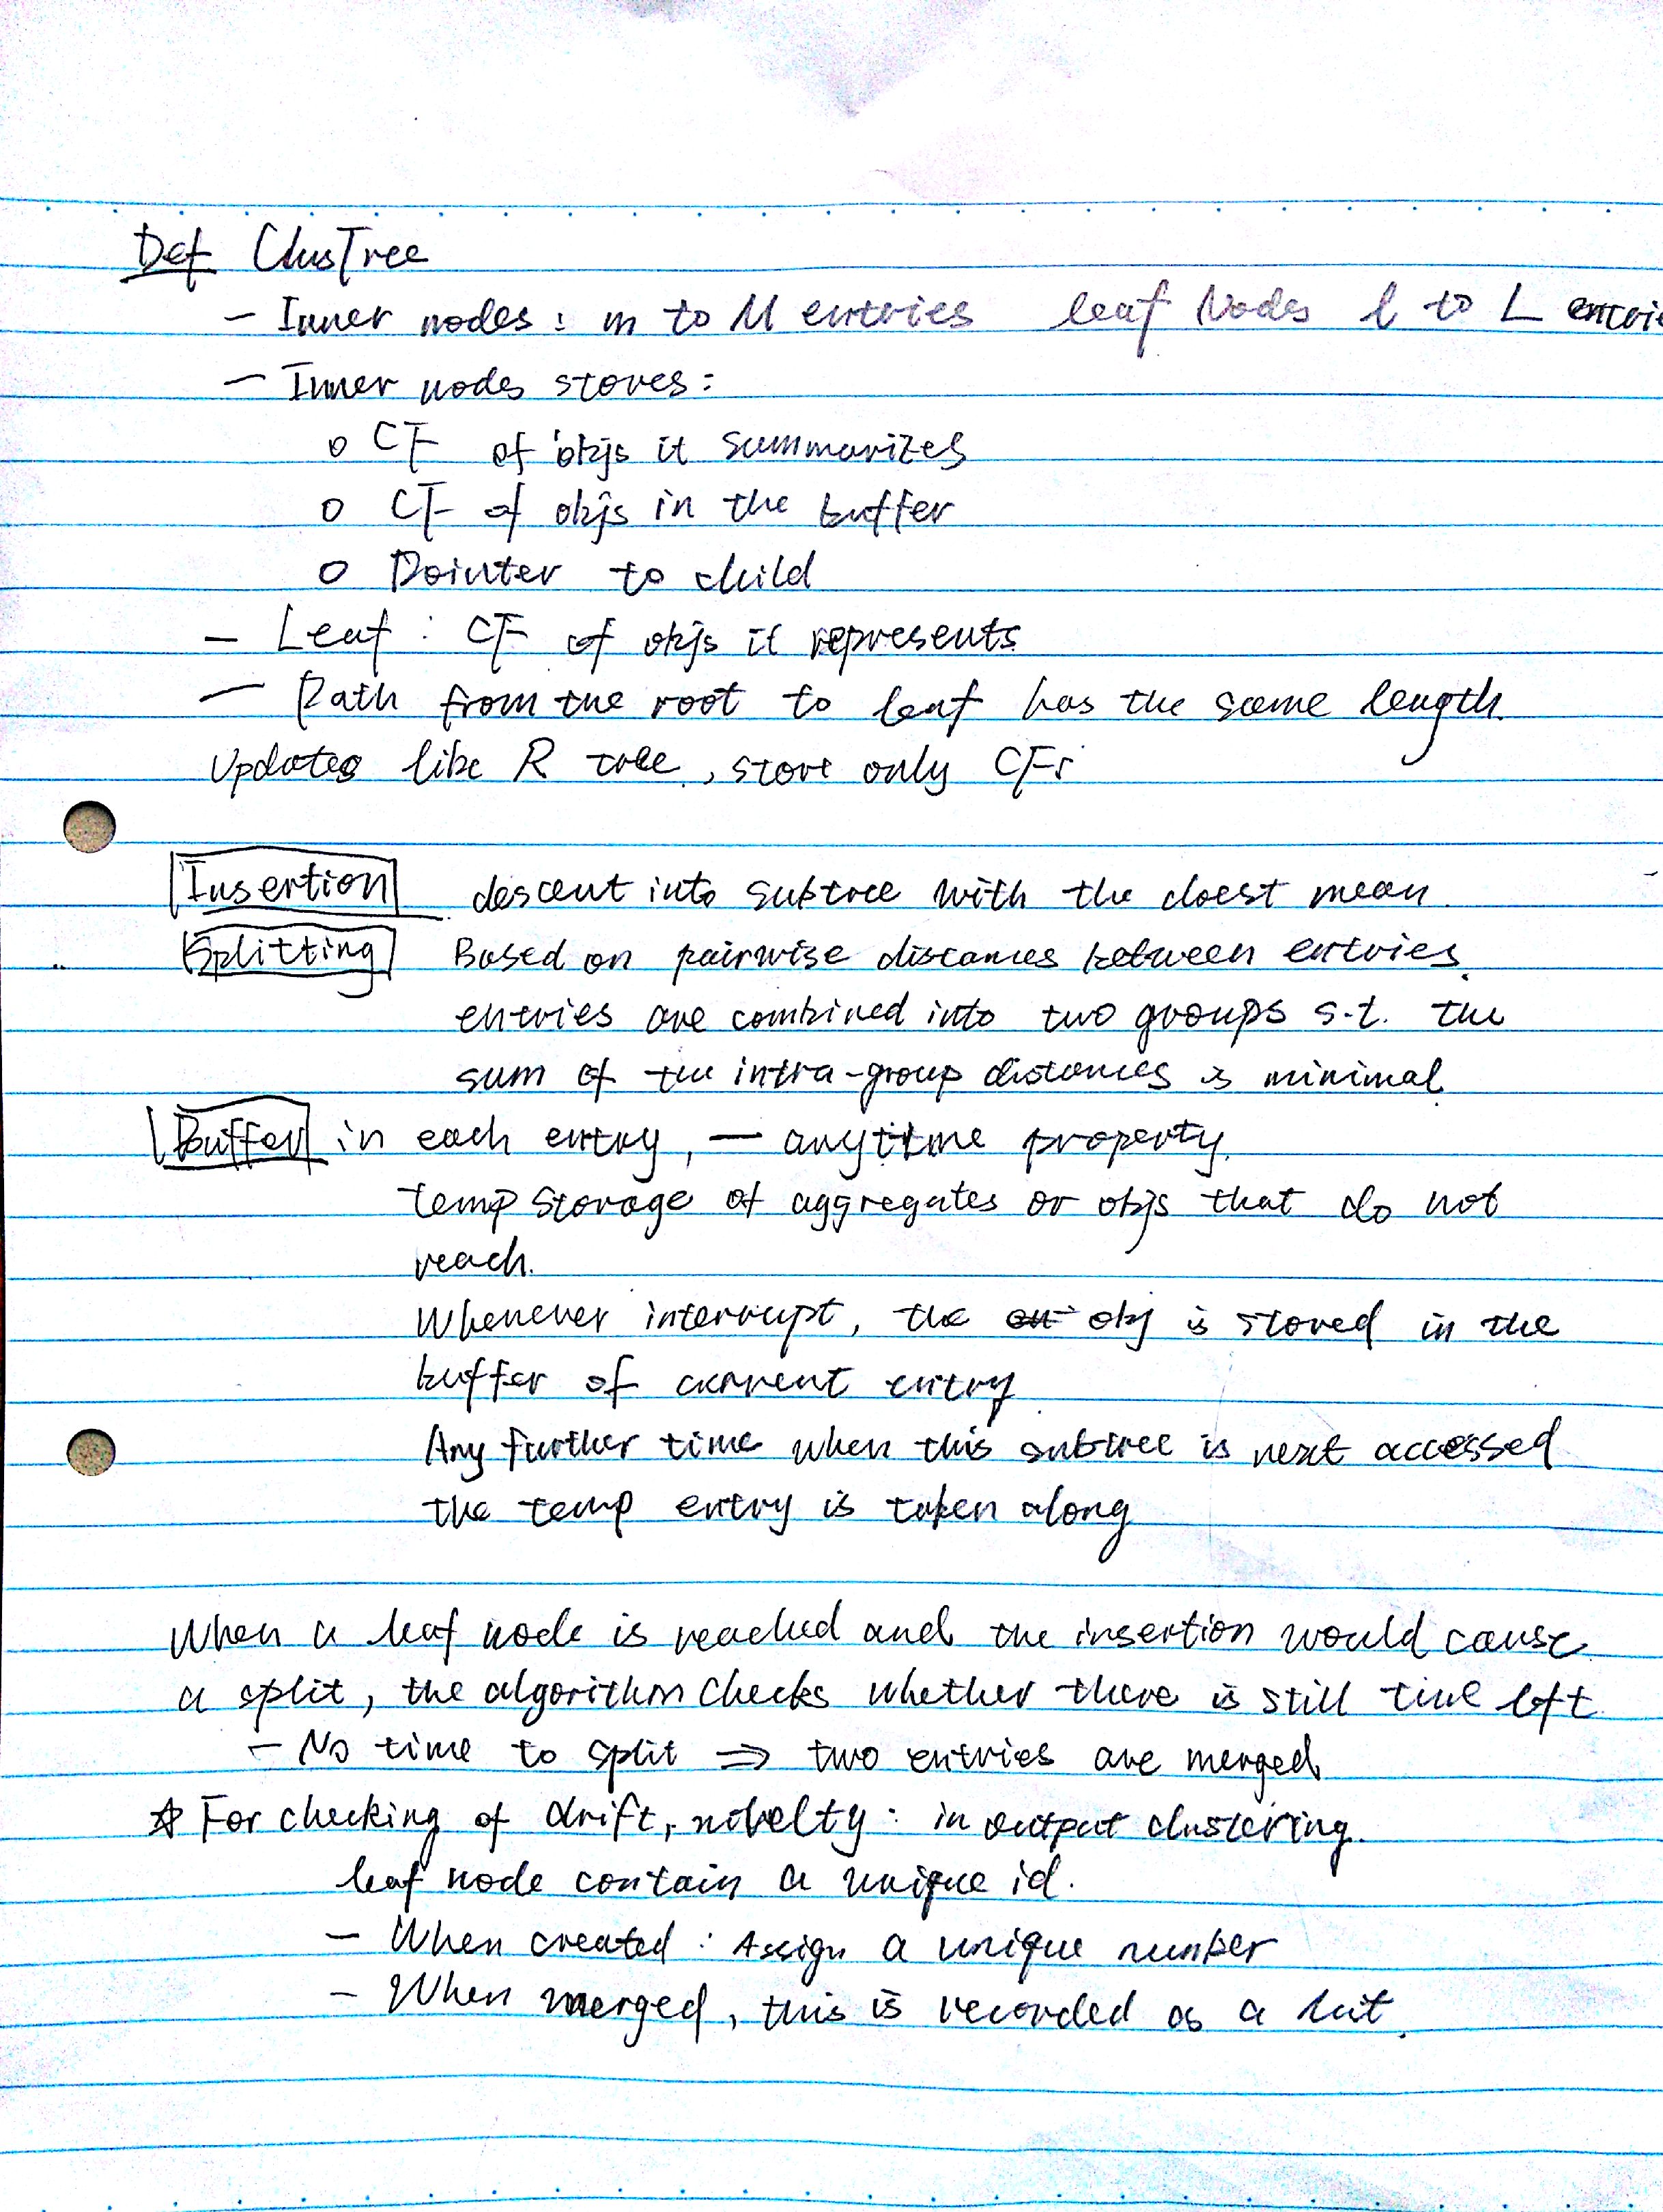 Def ClusTree
- Inner nodes : m to M entries leaf Nodes l to L entrie
- Inner nodes stores :
o CF of objs it summarizes
o CF of objs in the buffer
o Pointer to child
- Leaf : CF of objs it represents
- Path from the root to leaf has the same length.
Updates like R tree, store only CFs
Insertion descent into subtree with the cloest mean.
Splitting Based on pairwise distances between entries.
entries are combined into two groups s.t. the
sum of the intra-group distances is minimal
Buffer in each entry, — anytime property.
temp storage of aggregates or objs that do not
reach.
Whenever interrupt, the obj is stored in the
buffer of current entry.
Any further time when this subtree is next accessed
the temp entry is taken along
When a leaf node is reached and the insertion would cause
a split, the algorithm checks whether there is still time left
- No time to split ⇒ two entries are merged
☆ For checking of drift, novelty : in output clustering.
leaf node contain a unique id.
- When created : Assign a unique number
- When merged, this is recorded as a